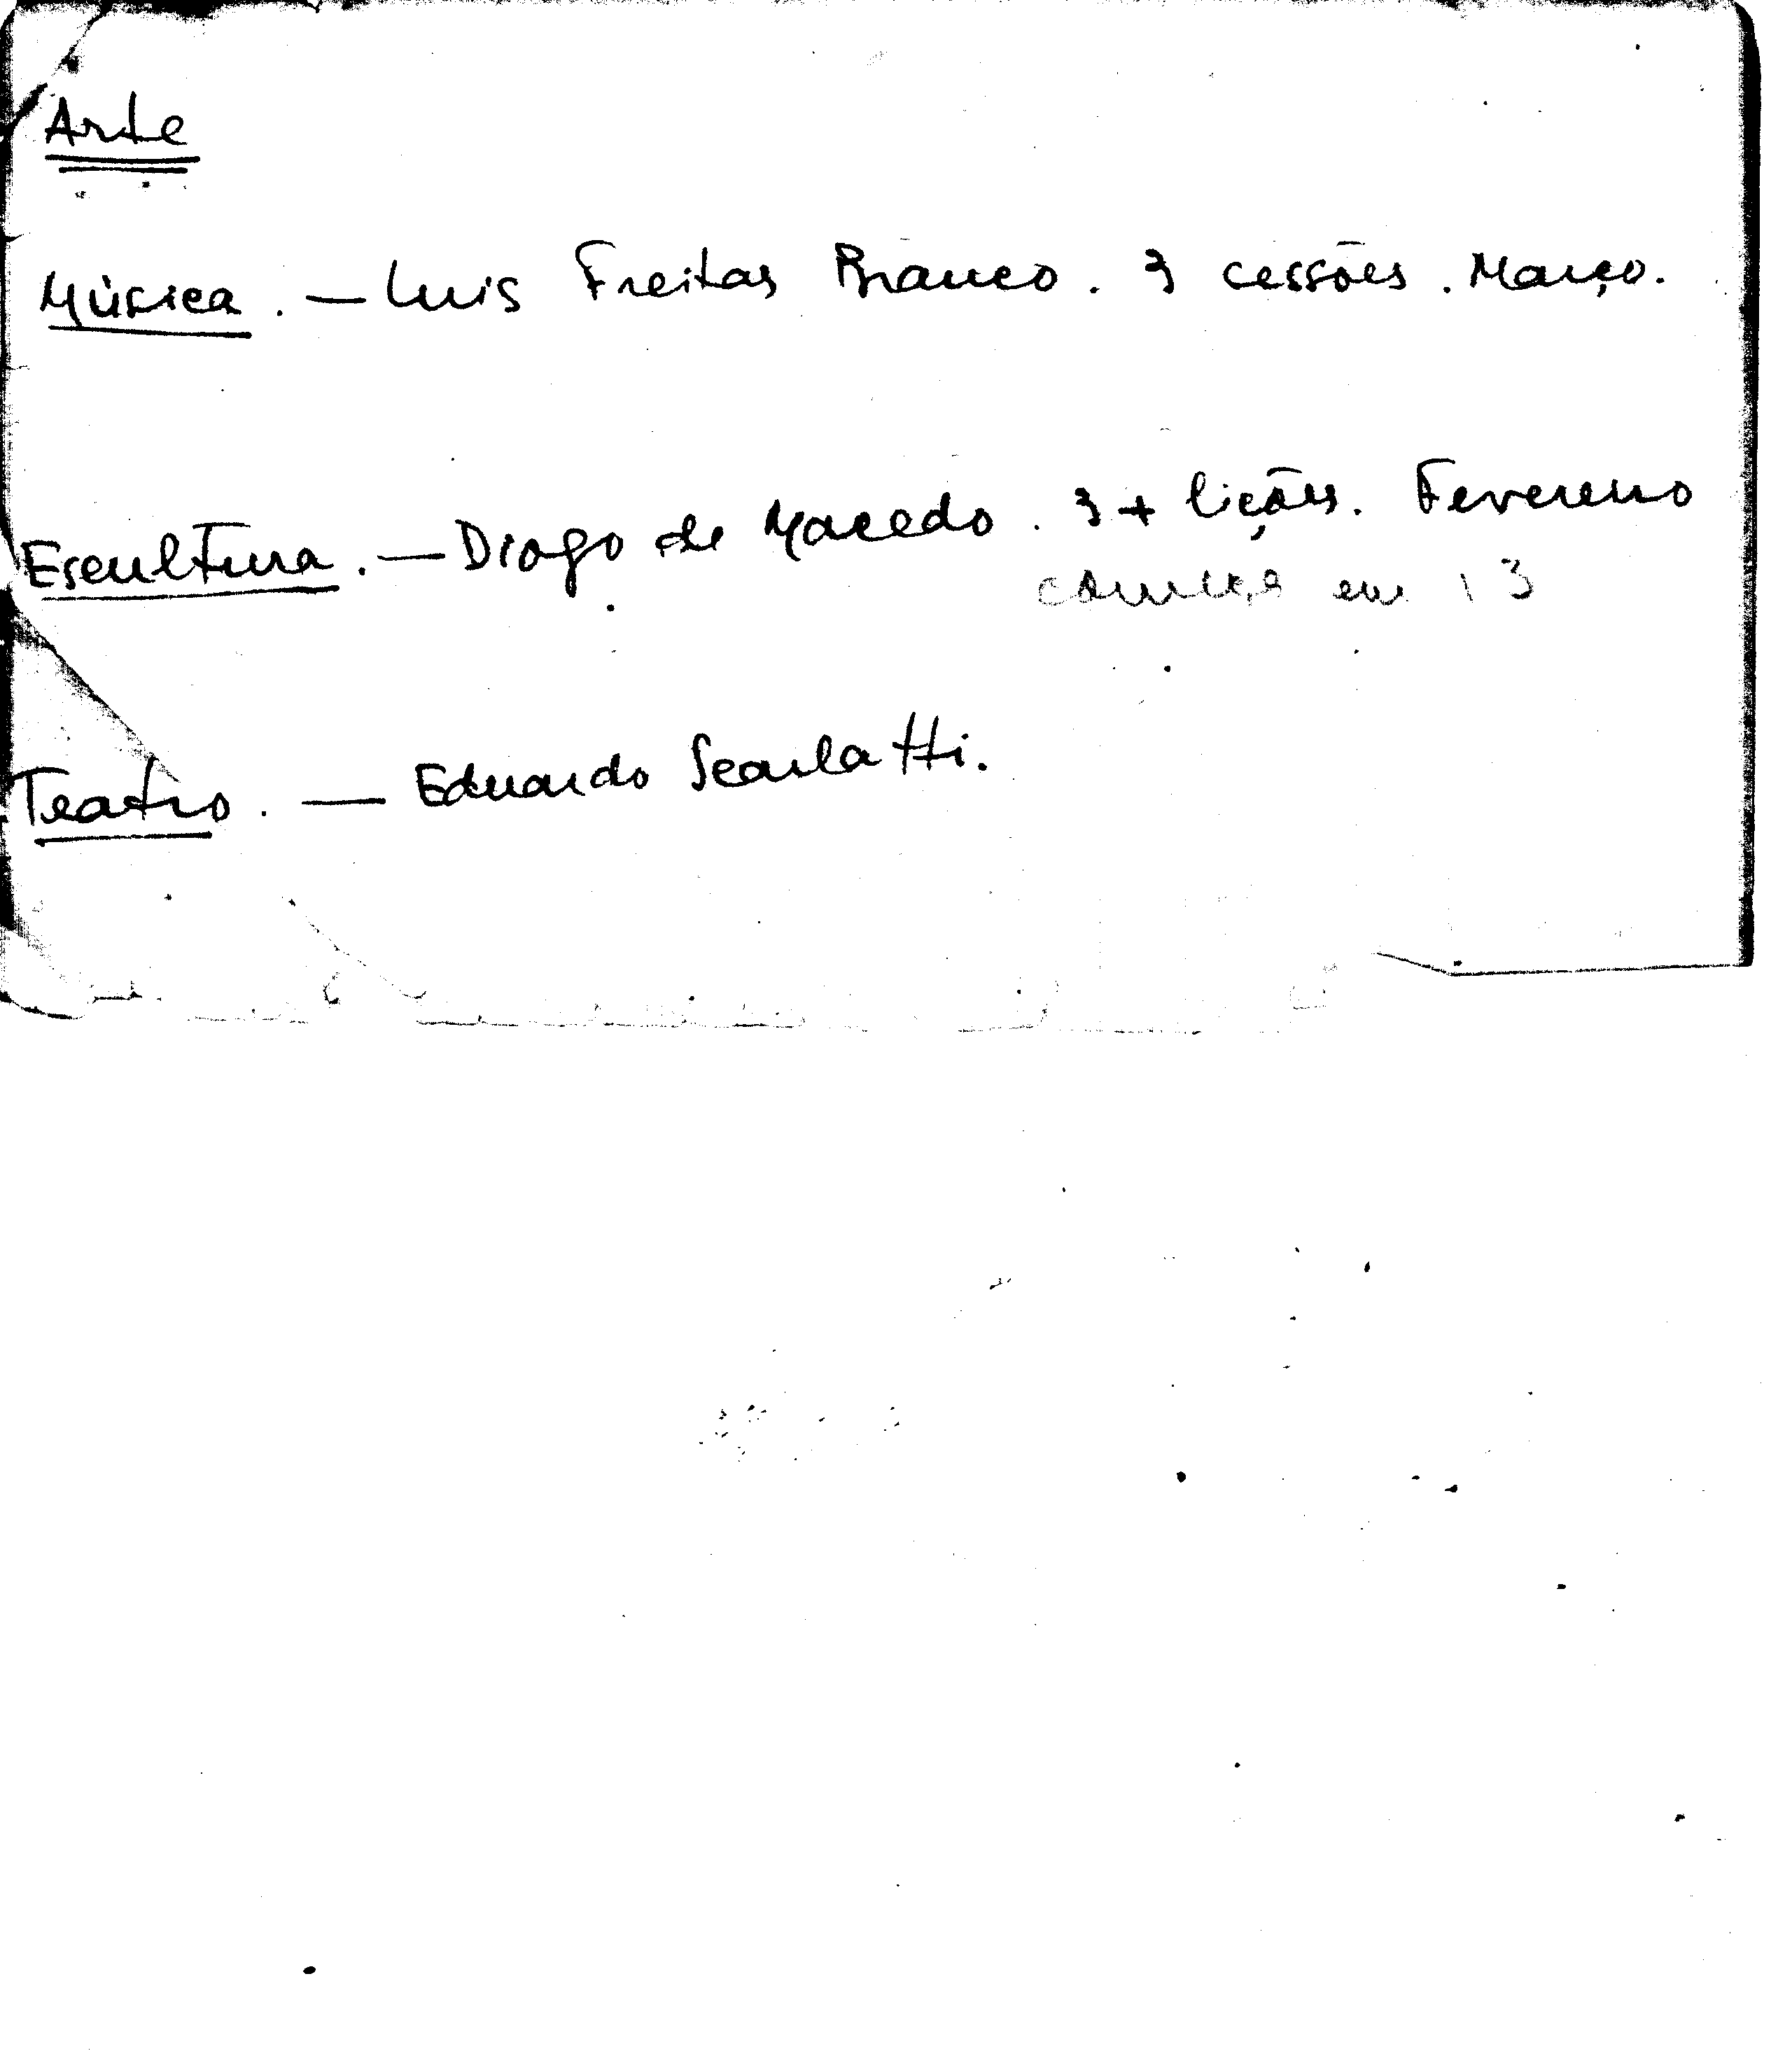 Arte
Música. — Luis Freitas Branco. 3 cessões. Março.
Escultura. — Diogo de Macedo. 3 + lições. Fevereiro
começa em 13
Teatro. — Eduardo Scarlatti.